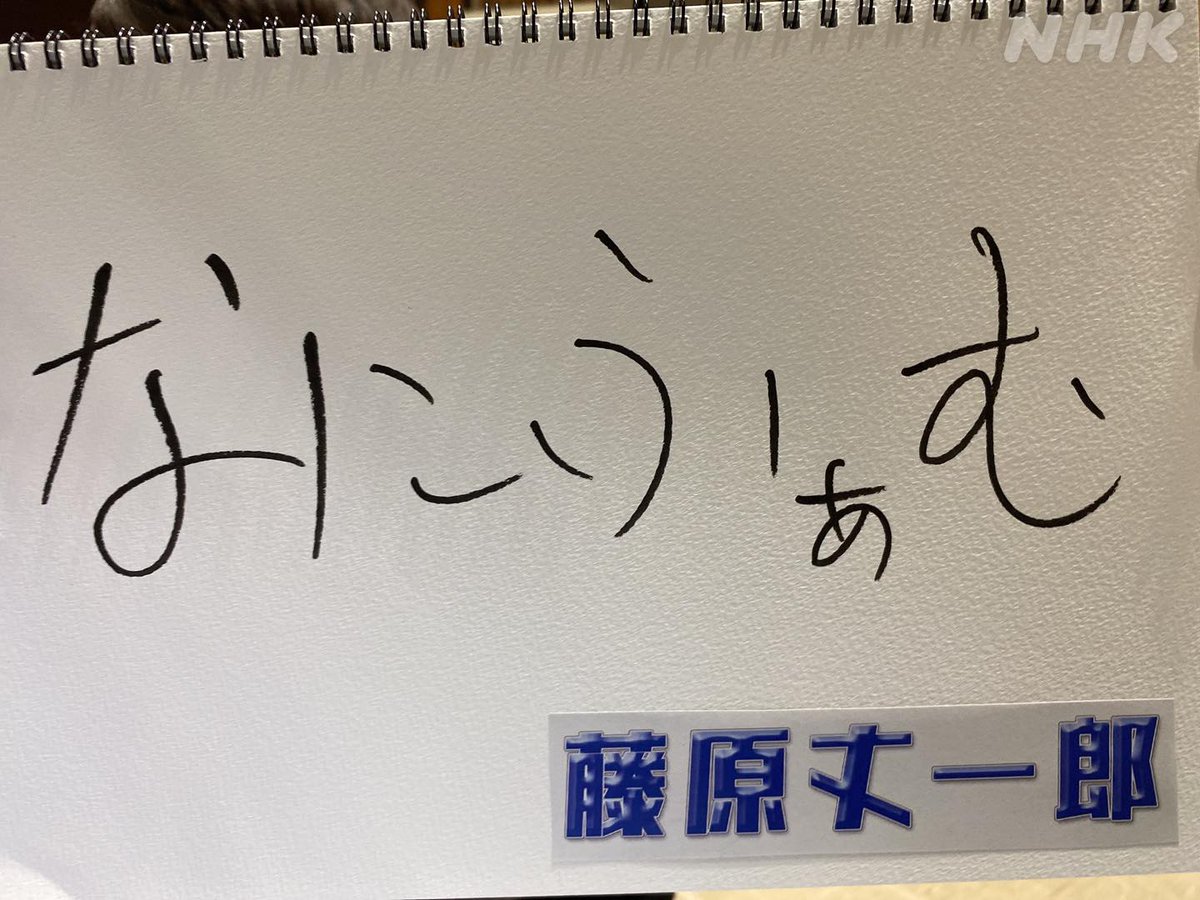 NHK
なにふぁむ
藤原丈一郎